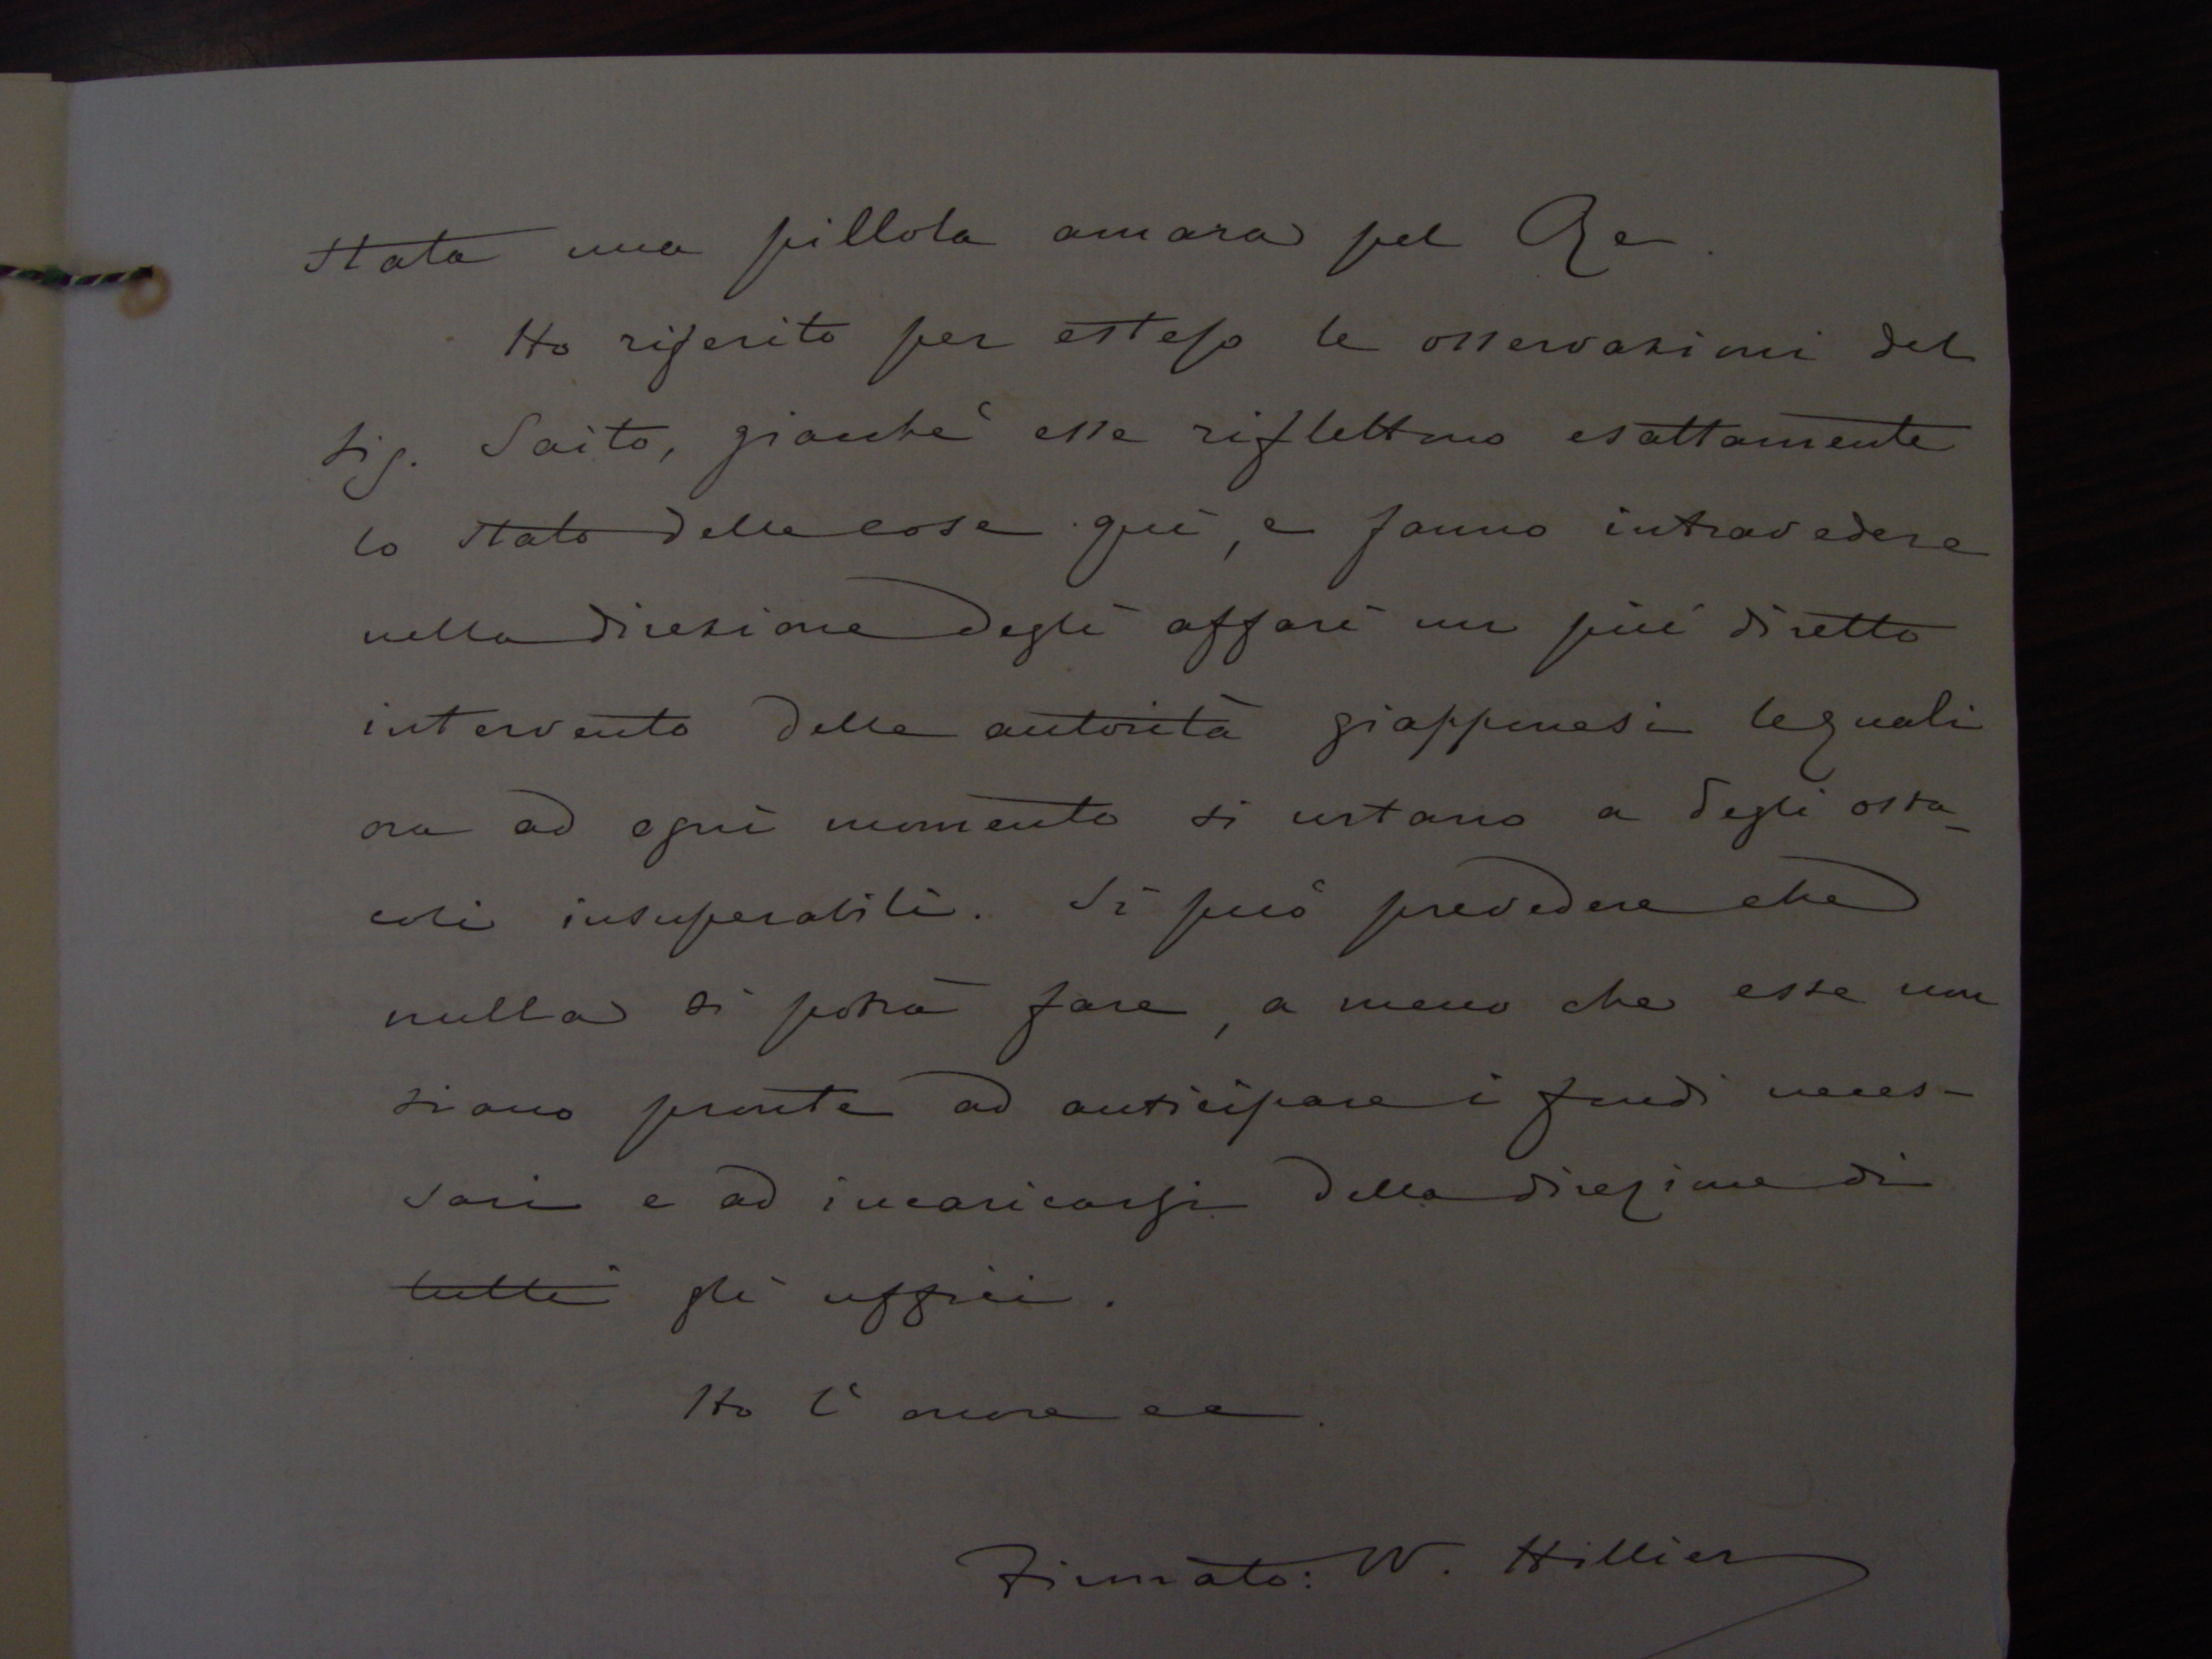 stata una pillola amara pel Re.
Ho riferito per esteso le osservazioni del
Sig. Saito, giacchè esse riflettono esattamente
lo stato delle cose quì, e fanno intravedere
nella direzione degli affari un più diretto
intervento delle autorità giapponesi le quali
ora ad ogni momento si urtano a degli osta-
coli insuperabili. Si può prevedere che
nulla si potrà fare, a meno che esse non
siano pronte ad anticipare i fondi neces-
sari e ad incaricarsi della direzione di
tutti gli uffici.
Ho l'onore ee.
Firmato: W. Hillier